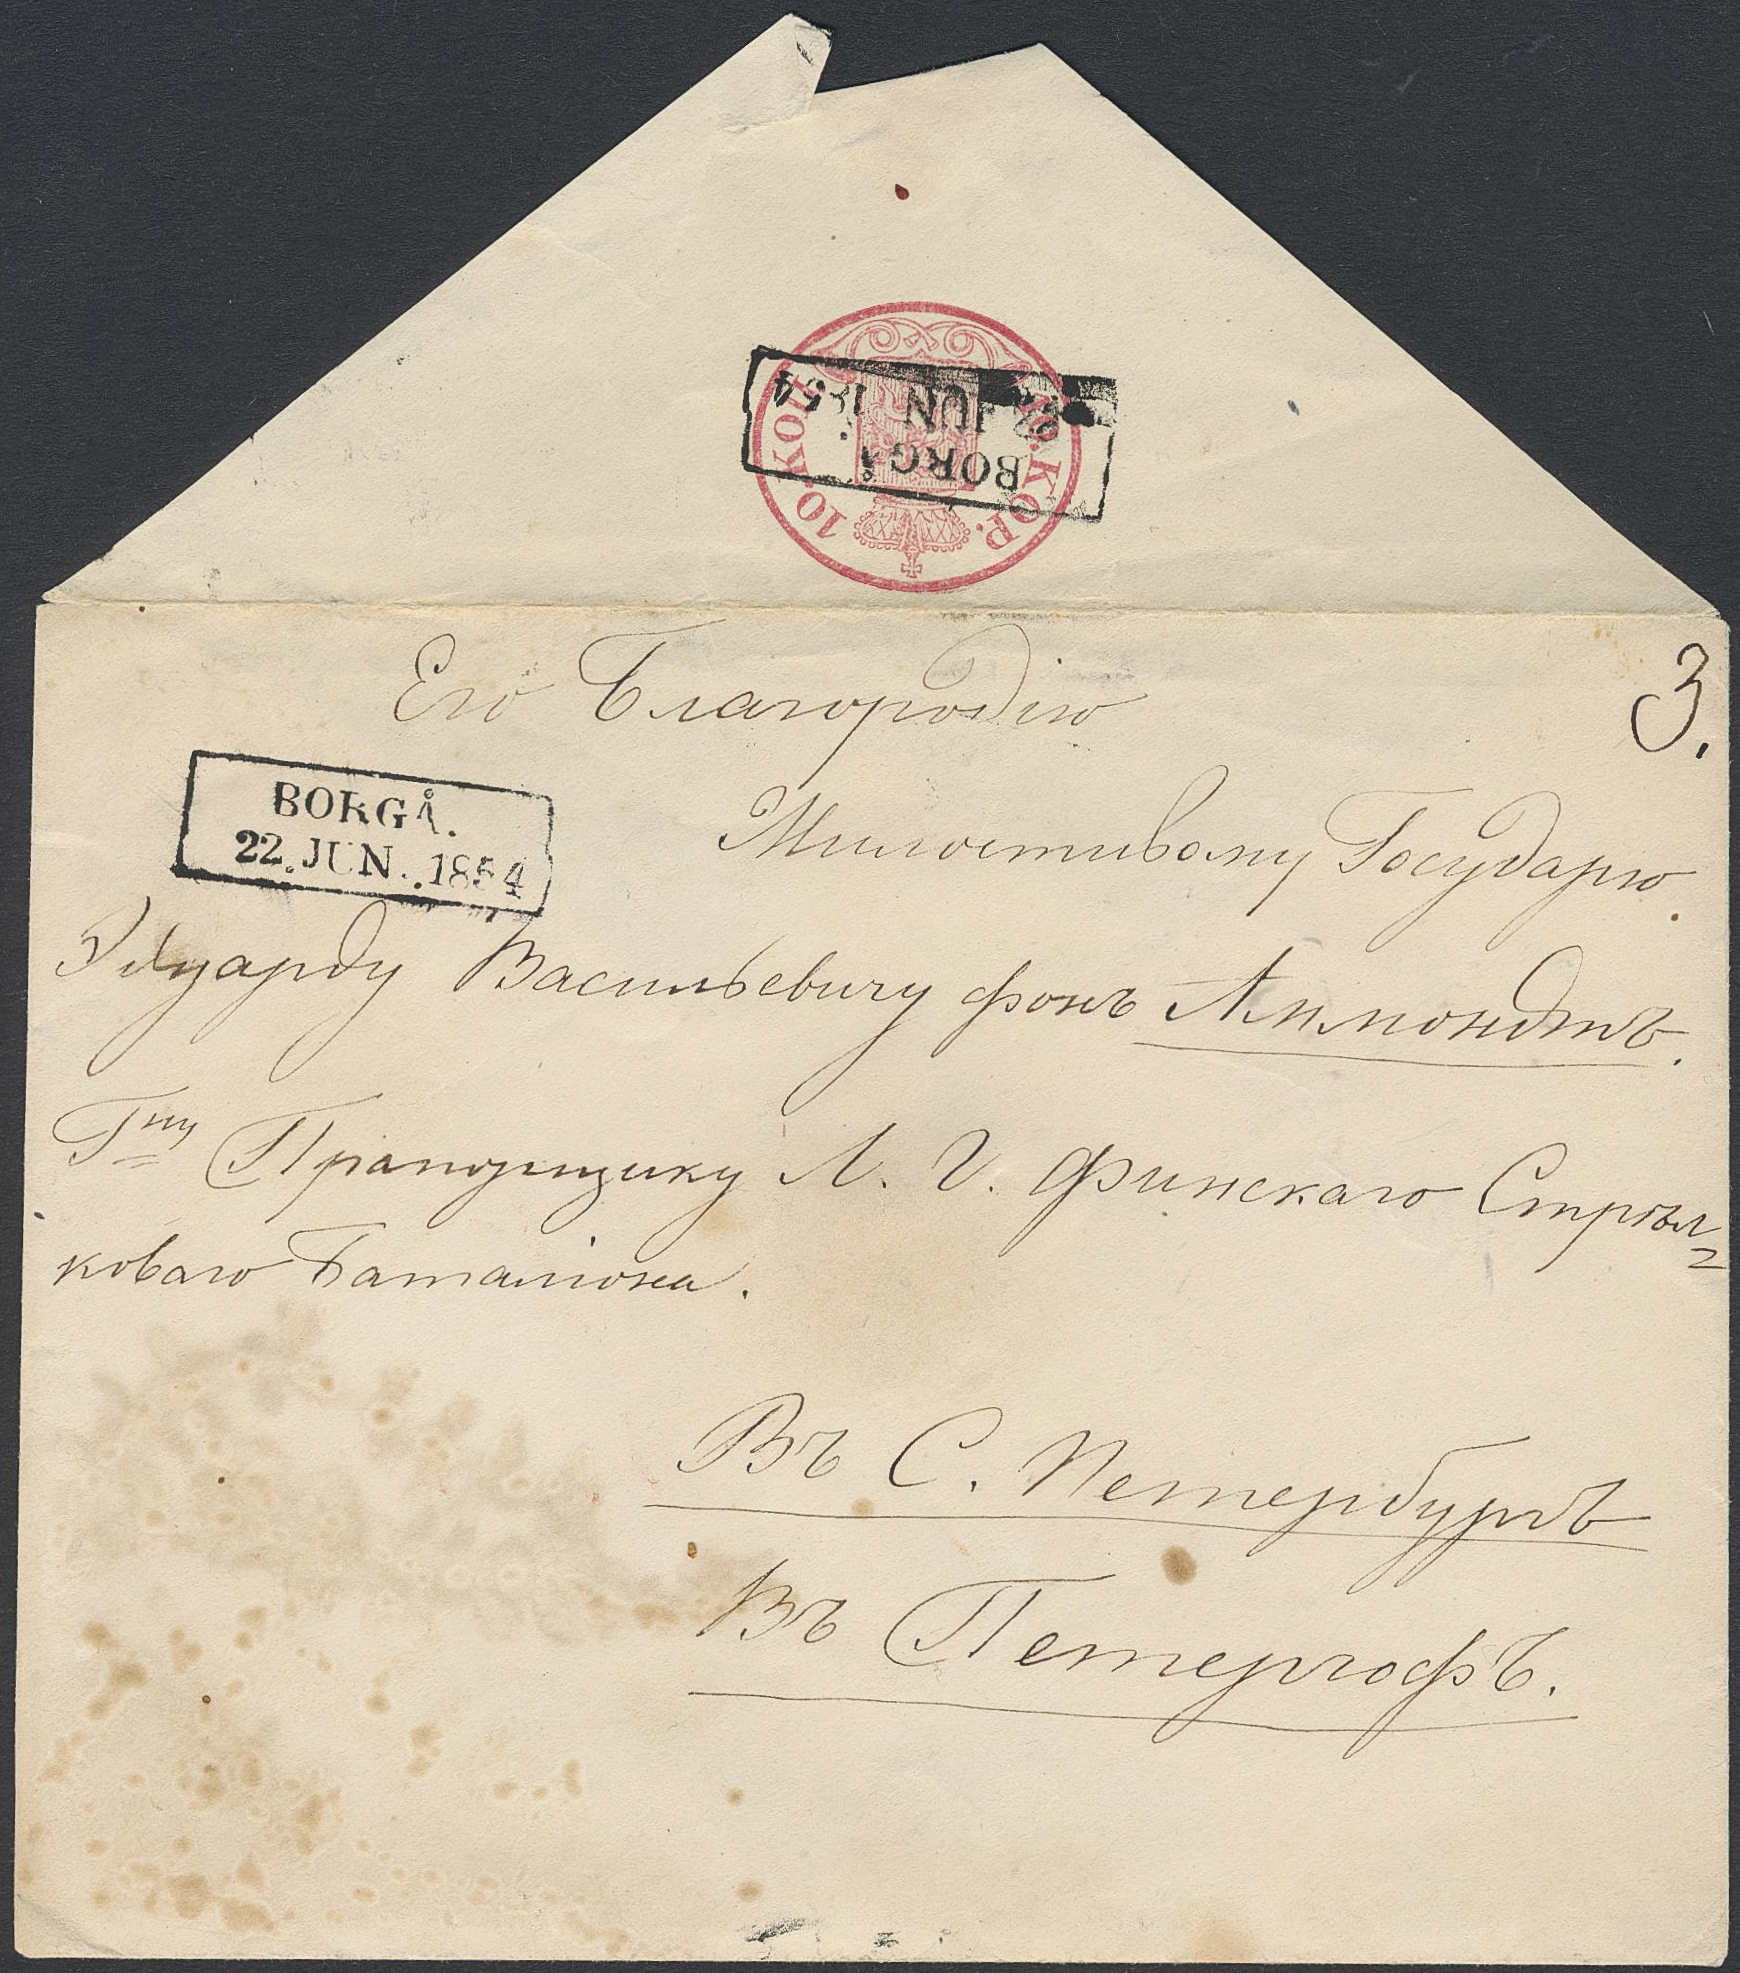 10. КОП.
10. KOP.
BORGÅ.
22. JUN. 1854
3.
Его Благородію
BORGÅ.
22. JUN. 1854
Милостивому Государю
Эдуарду Васильевичу фонъ Аммондтъ.
Гну Прапорщику Л. Г. Финскаго Стрѣл=
коваго Баталіона.
Въ С. Петербургъ
Въ Петергофъ.